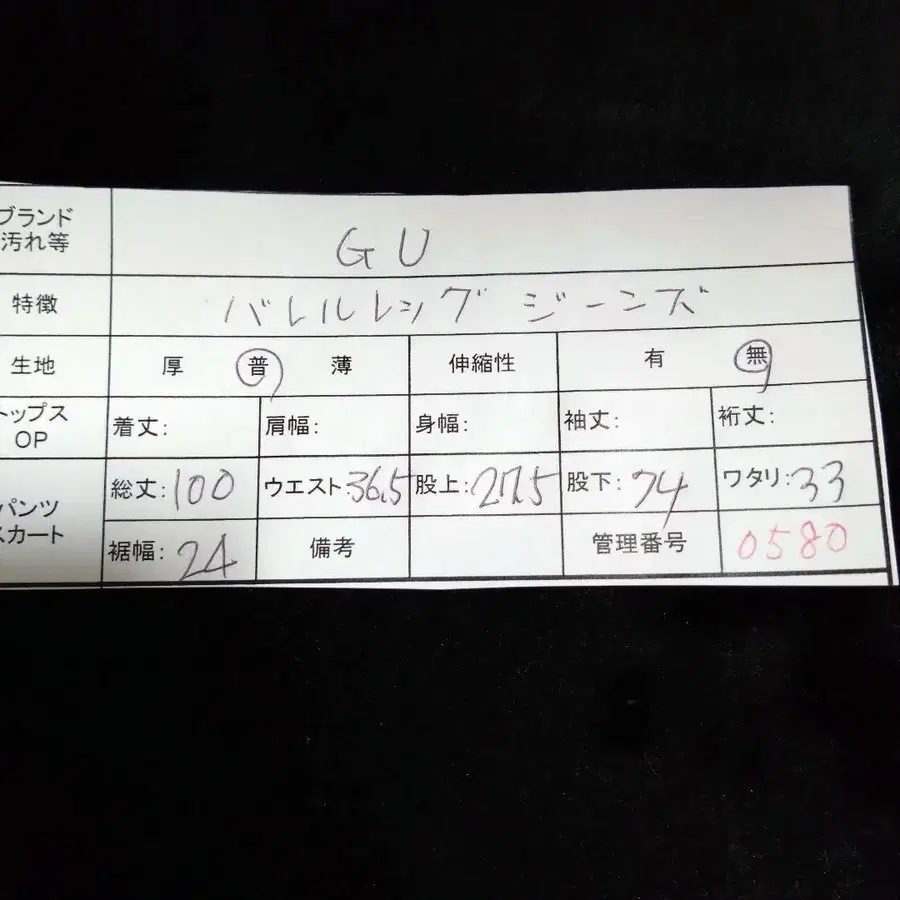 ブランド
汚れ等
GU
特徴 バレルレング ジーンズ
生地 厚 普 薄 伸縮性 有 無
トップス
OP
着丈: 肩幅: 身幅: 袖丈: 裄丈:
パンツ
スカート
総丈: 100 ウエスト: 36.5 股上: 27.5 股下: 74 ワタリ: 33
裾幅: 24 備考 管理番号 0580